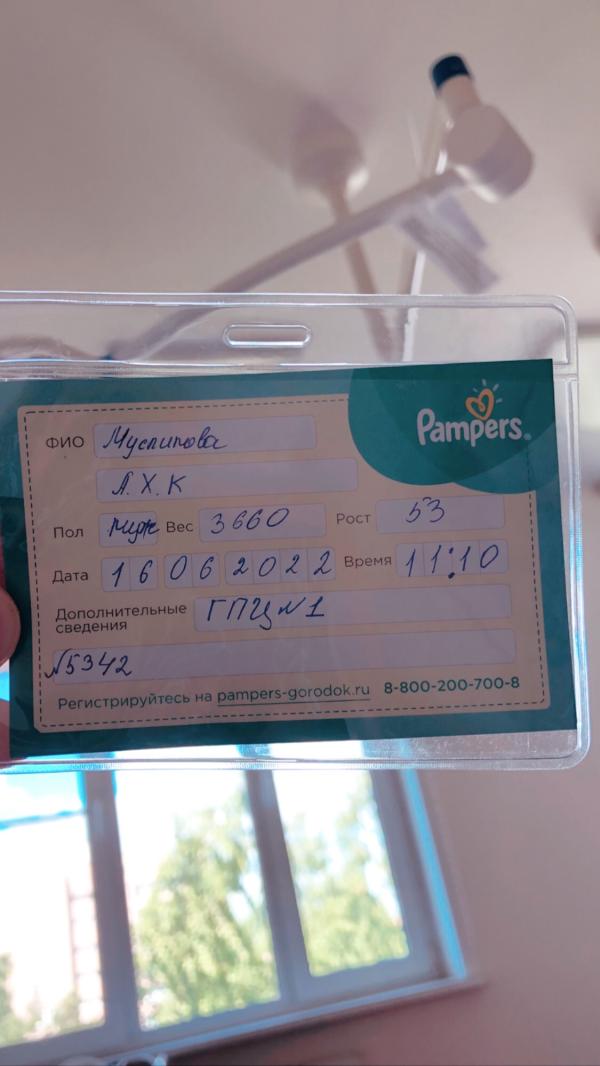 Pampers®
ФИО Муслимова
А. Х. К
Пол муж Вес 3660 Рост 53
Дата 16 06 2022 Время 11:10
Дополнительные
сведения ГПЦ N1
N5342
Регистрируйтесь на pampers-gorodok.ru 8-800-200-700-8